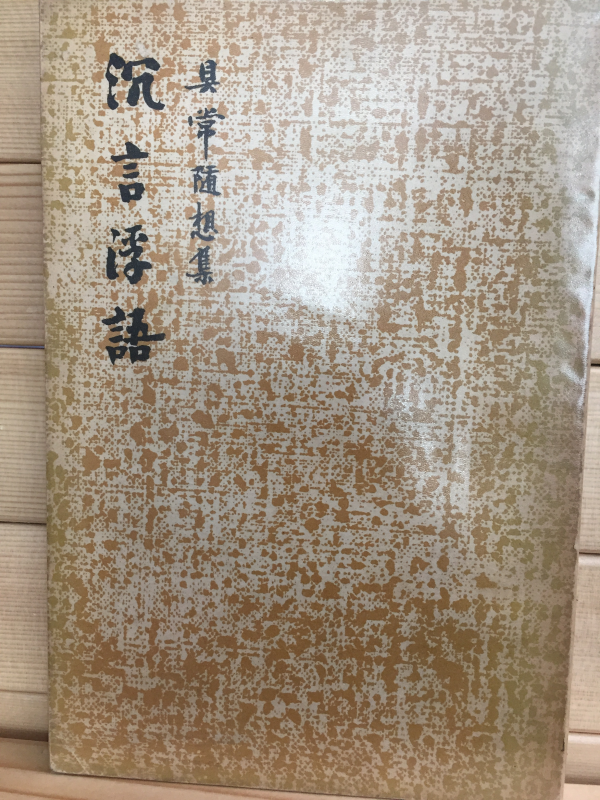 具常隨想集
沉言浮語